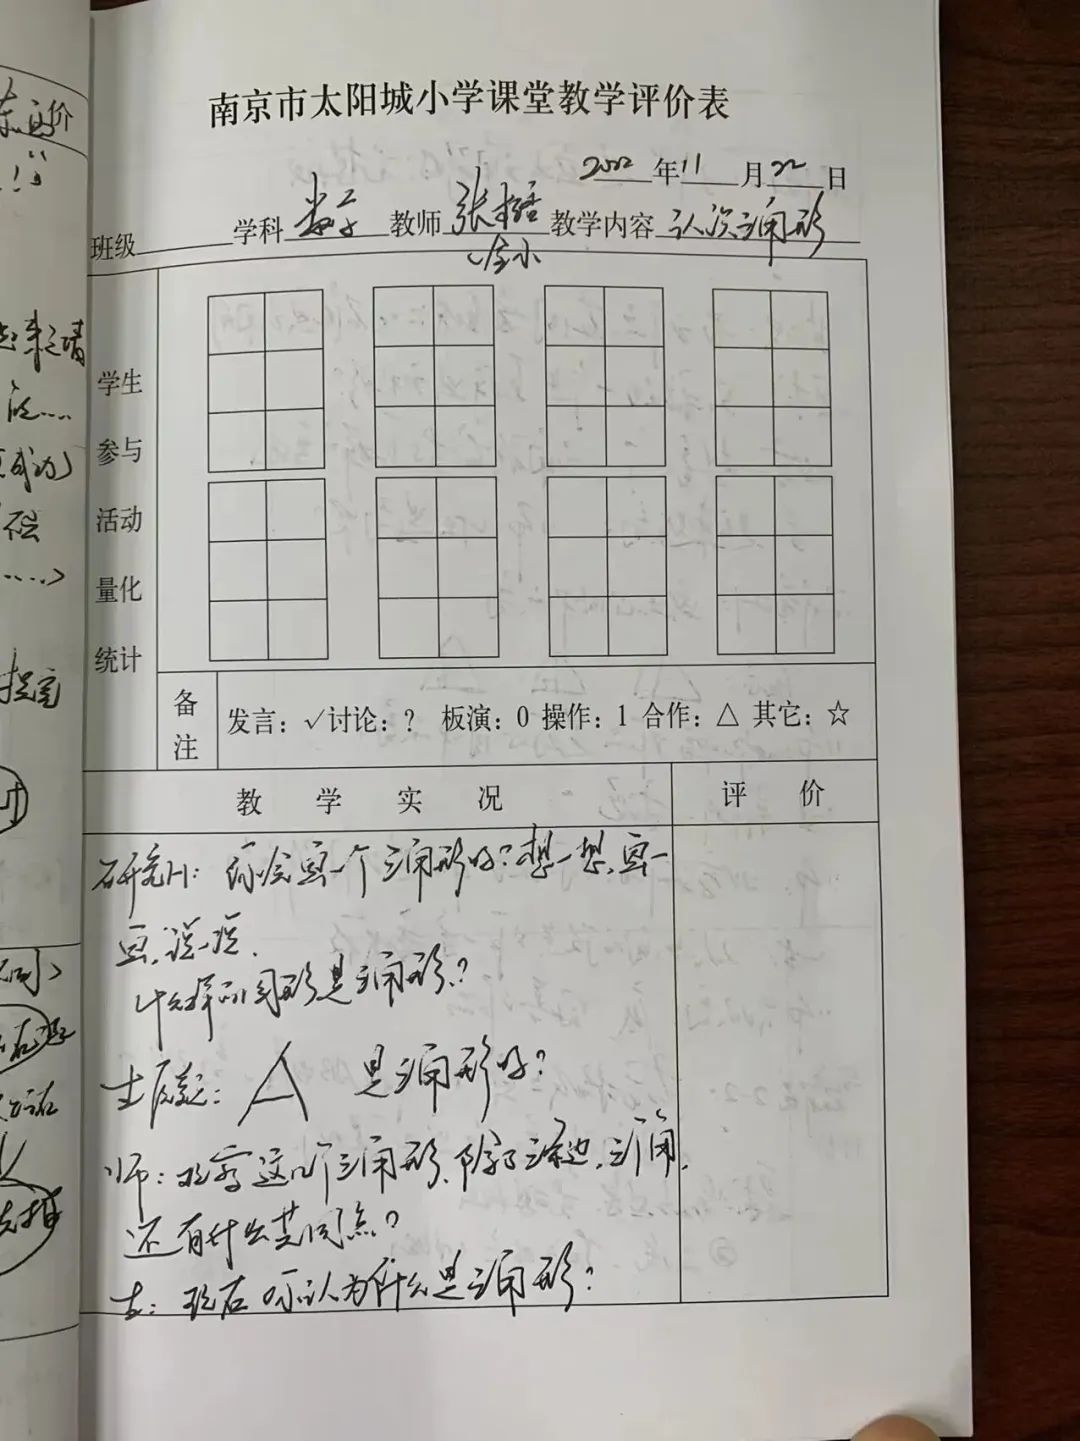 南京市太阳城小学课堂教学评价表
2022年11月22日
班级 学科 数学 教师 张 教学内容 认识三角形
学生
参与
活动
量化
统计
备注
发言：√讨论：？ 板演：0 操作：1 合作：△ 其它：☆
教 学 实 况 评 价
研究1：你会画一个三角形吗？想一想，画一
画，说一说。
什么样的图形是三角形？
生质疑： 是三角形吗？
师：观察这几个三角形，除了三条边，三个角，
还有什么共同点？
生：现在你认为什么是三角形？
价